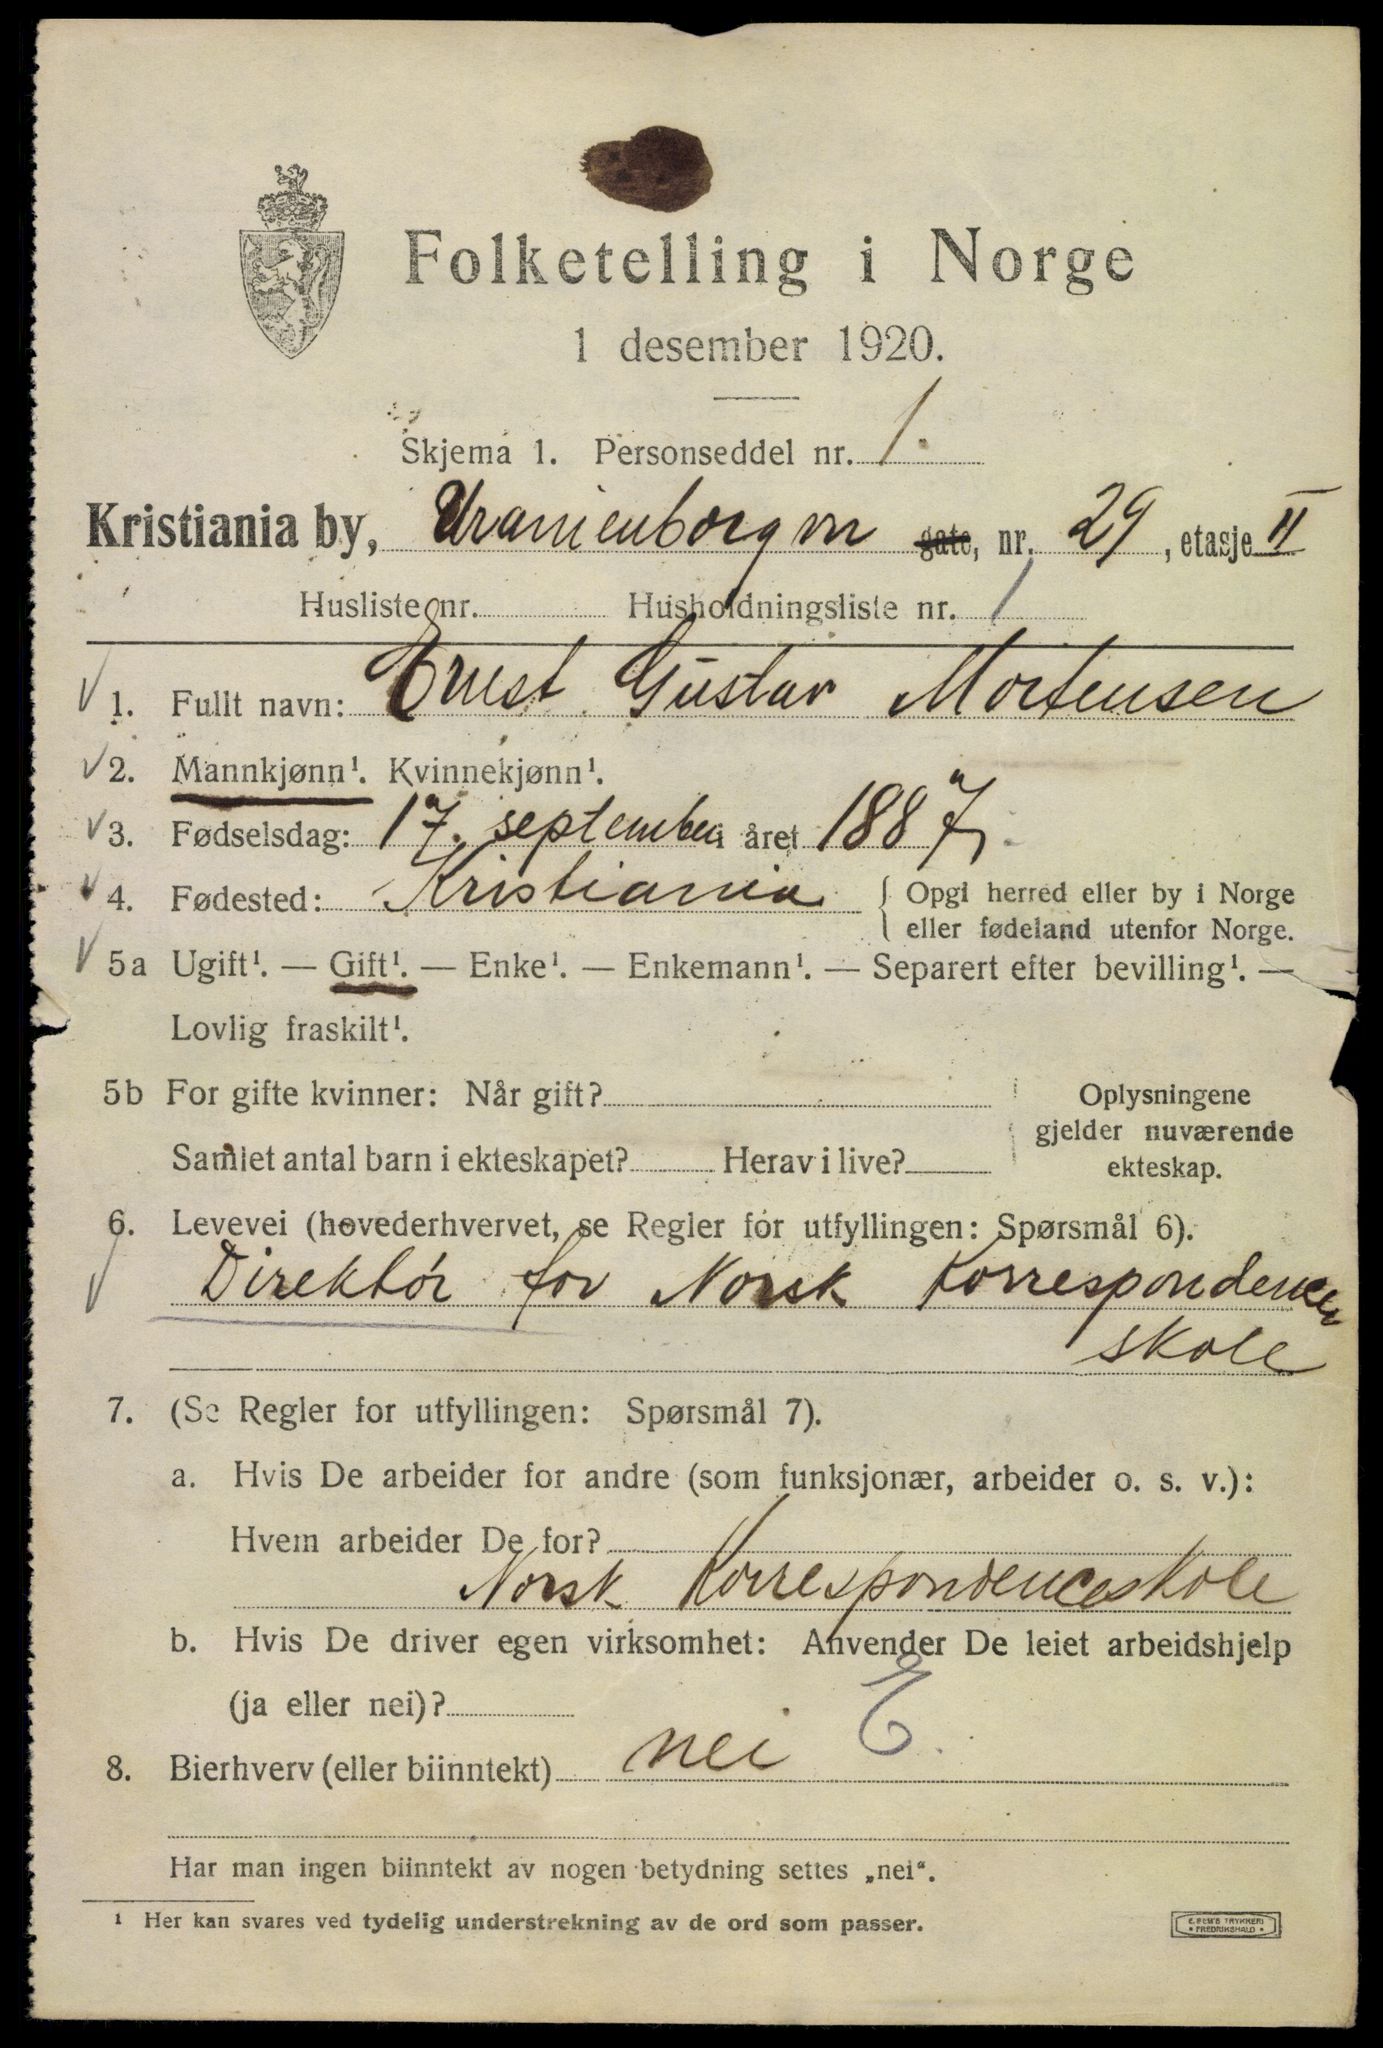 Folketelling i Norge
1 desember 1920.
Skjema 1. Personseddel nr. 1.
Kristiania by, Uranienborgvn gate, nr. 29, etasje II
Husliste nr. Husholdningsliste nr. 1
1. Fullt navn: Ernst Gustav Mortensen
2. Mannkjønn¹. Kvinnekjønn¹.
3. Fødselsdag: 17. september i året 1887
4. Fødested: Kristiania { Opgi herred eller by i Norge
eller fødeland utenfor Norge.
5a Ugift¹. — Gift¹. — Enke¹. — Enkemann¹. — Separert efter bevilling¹. —
Lovlig fraskilt¹.
5b For gifte kvinner: Når gift? Oplysningene
gjelder nuværende
Samlet antal barn i ekteskapet? Herav i live? ekteskap.
6. Levevei (hovederhvervet, se Regler for utfyllingen: Spørsmål 6).
Direktør for Norsk Korrespondence
skole
7. (Se Regler for utfyllingen: Spørsmål 7).
a. Hvis De arbeider for andre (som funksjonær, arbeider o. s. v.):
Hvem arbeider De for?
Norsk Korrespondenceskole
b. Hvis De driver egen virksomhet: Anvender De leiet arbeidshjelp
(ja eller nei)? E.
8. Bierhverv (eller biinntekt) nei
Har man ingen biinntekt av nogen betydning settes „nei“.
¹ Her kan svares ved tydelig understrekning av de ord som passer.
E. SEM'S TRYKKERI
FREDRIKSHALD